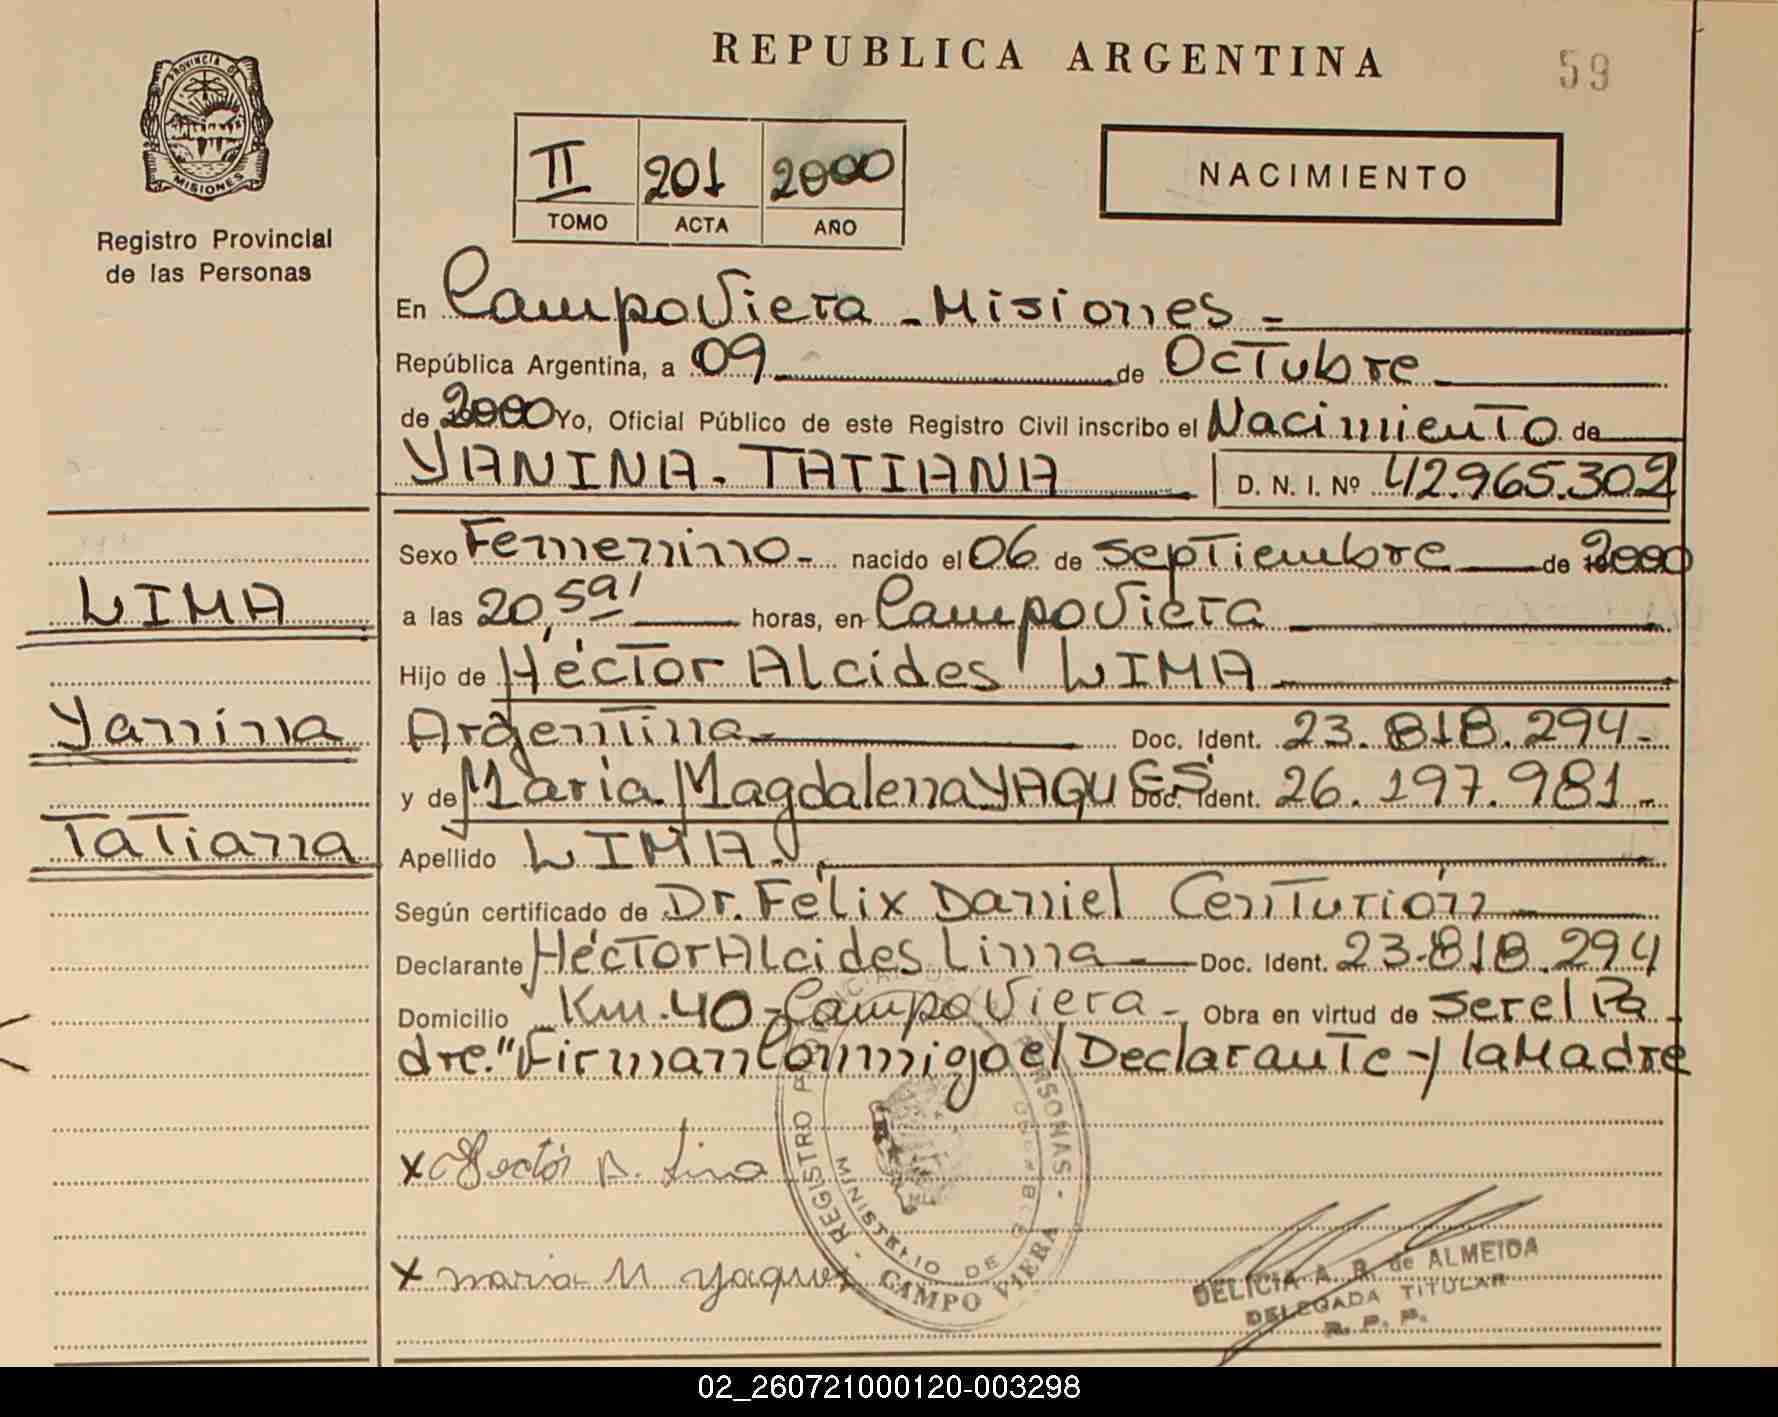 REPUBLICA ARGENTINA
59
PROVINCIA DE
MISIONES
Registro Provincial
de las Personas
II 201 2000
TOMO ACTA AÑO
NACIMIENTO
En Campo Viera - Misiones -
República Argentina, a 09 de Octubre
de 2000 Yo, Oficial Público de este Registro Civil inscribo el Nacimiento de
YANINA - TATIANA D. N. I. Nº 42.965.302
Sexo Femenino - nacido el 06 de septiembre de 2000
LIMA
a las 20,59' horas, en Campo Viera
Hijo de Héctor Alcides LIMA
Yanina
Argentina - Doc. Ident. 23.818.294 -
y de María Magdalena YAQUES Doc. Ident. 26.197.981 -
Tatiana
Apellido LIMA -
Según certificado de Dr. Félix Daniel Centurión
Declarante Héctor Alcides Lima Doc. Ident. 23.818.294
Domicilio Km. 40 - Campo Viera - Obra en virtud de ser el Pa
dre." Firman Conmigo el Declarante y la Madre
x Hector A. Lima
x maria M yaques
REGISTRO PROVINCIAL DE LAS PERSONAS - CAMPO VIERA -
MINISTERIO DE GOBIERNO
DELICIA A. R. de ALMEIDA
DELEGADA TITULAR
R. P. P.
02_260721000120-003298